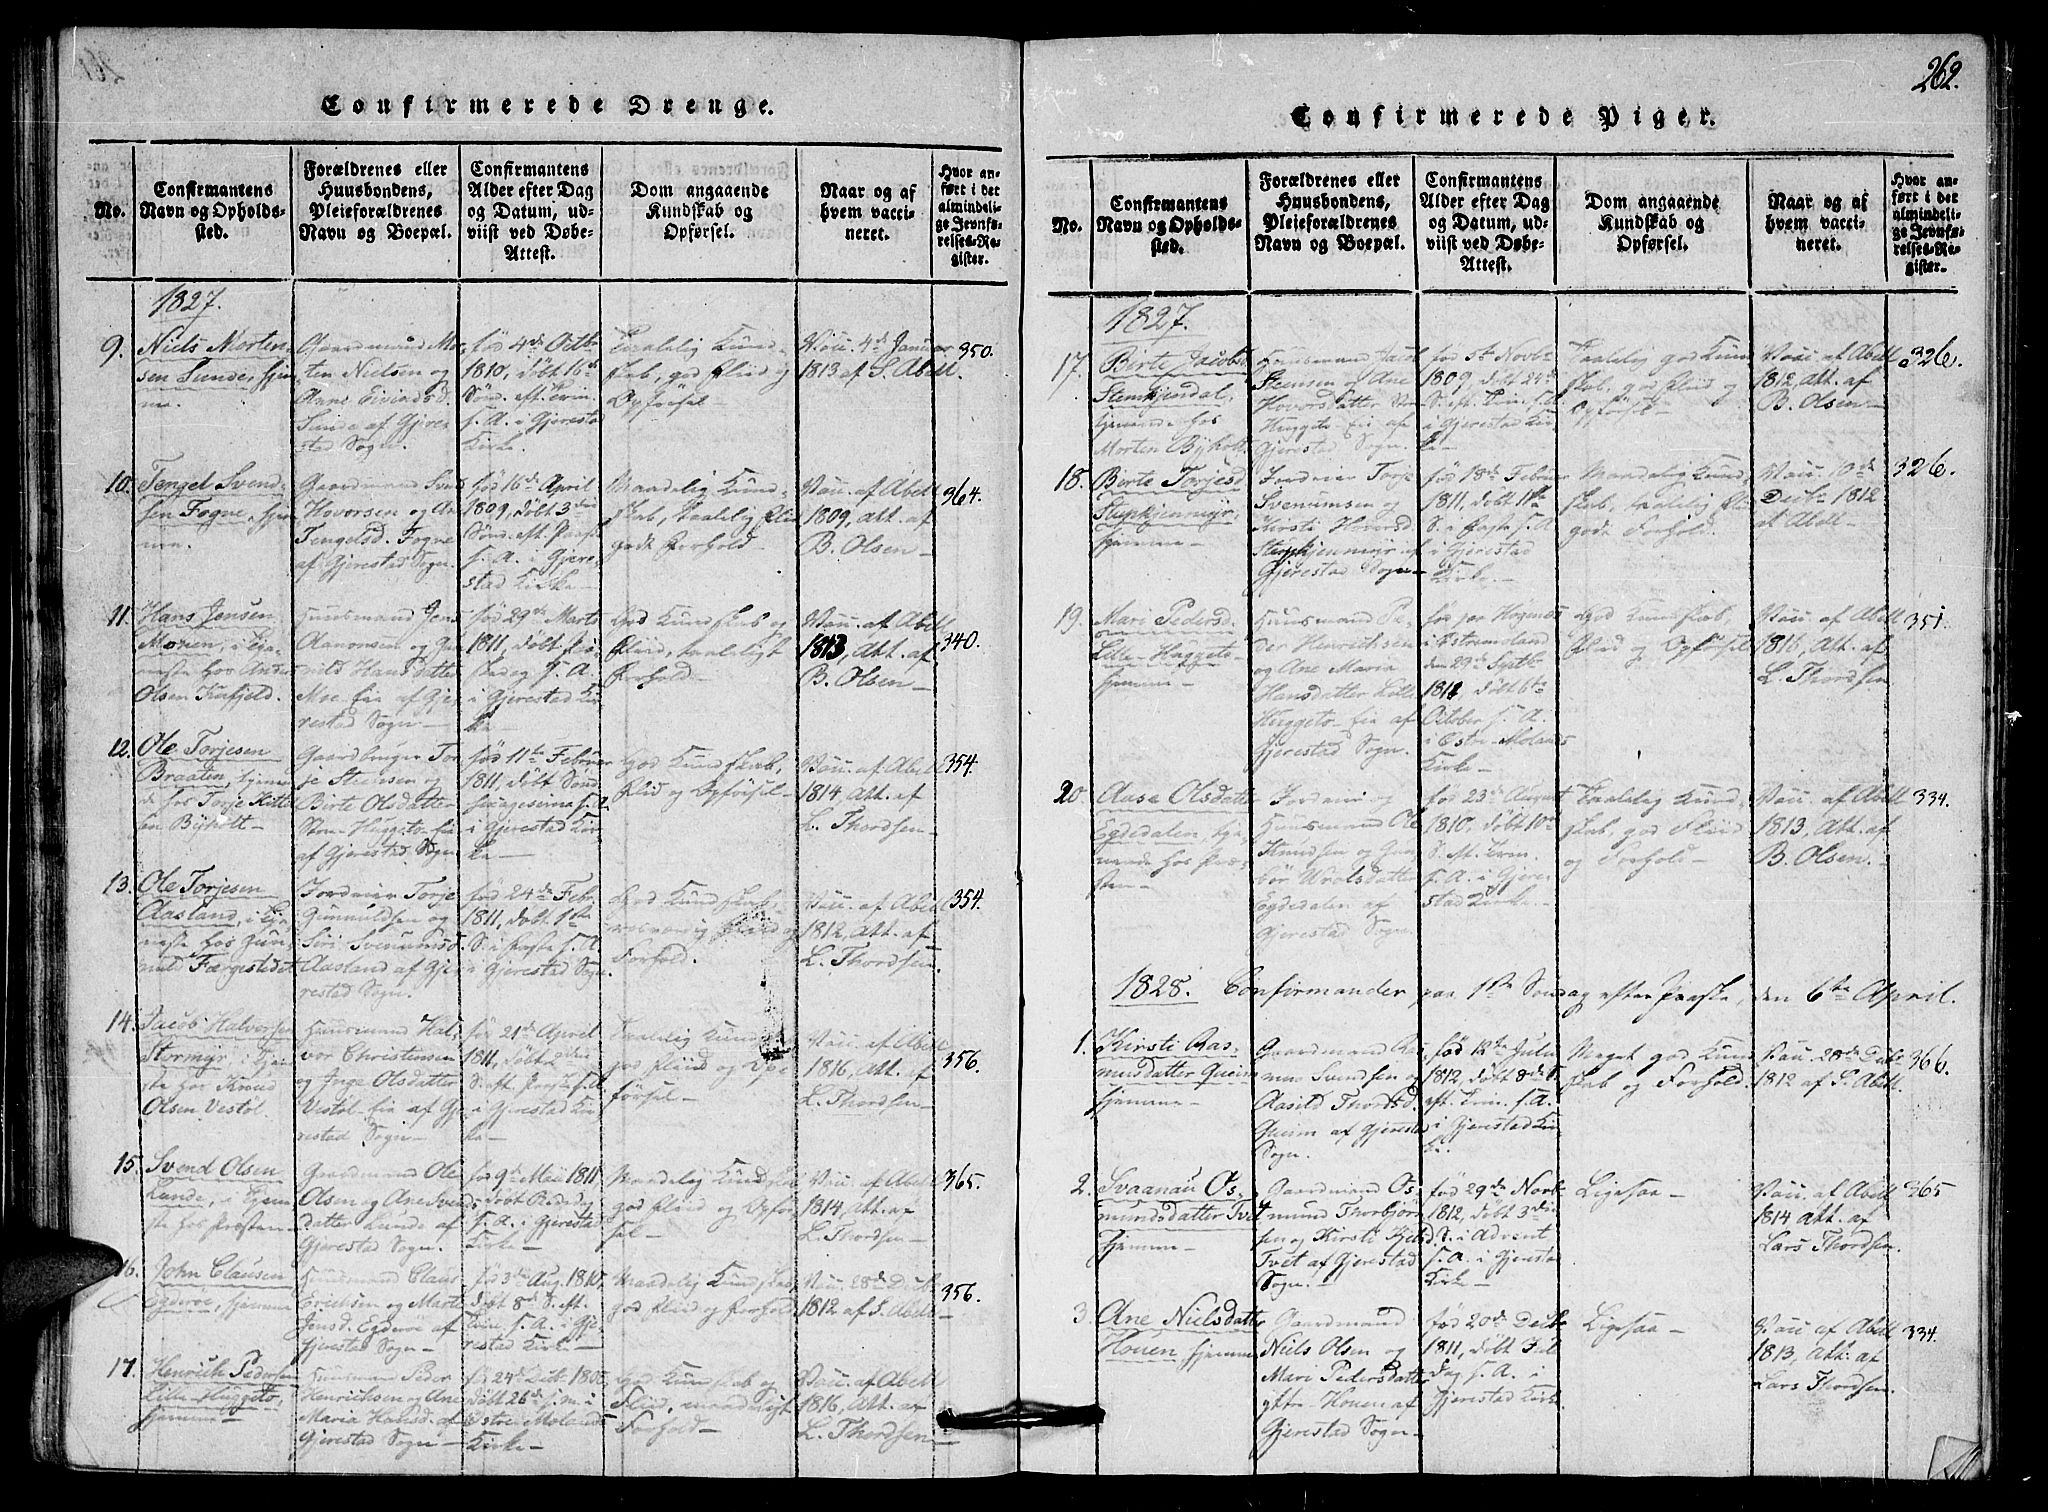 262.
Confirmerede Drenge.
No.
Confirmantens
Navn og Opholds-
sted.
Forældrenes eller
Huusbondens,
Pleieforældrenes
Navn og Boepæl.
Confirmantens
Alder efter Dag
og Datum, ud-
viist ved Døbe-
Attest.
Dom angaaende
Kundskab og
Opførsel.
Naar og af
hvem vacci-
neret.
Hvor an-
ført i det
almindeli-
ge Jevnfø-
relses-Re-
gister.
1827.
9.
Niels Morten-
sen Sunde, hjem-
me.
Gaardmand Mor-
ten Nielsen og
Anne Eivindsd.
Sunde af Gjere-
stad Sogn.
født 4de Octbr
1810, døbt 16de
Sønd. eft. Trin.
s. A. i Gjerestad
Kirke.
Taalelig Kund-
skab, god Fliid og
Opførsel -
Vacc. 4de Januar
1813 af S. Abell.
350.
10.
Tengel Svend-
sen Fogne, hjem-
me.
Gaardmand Svend
Hovorsen og An
Tengelsd. Fogne
af Gjerestad Sogn.
født 16de April
1809, døbt 3die
Sønd. eft. Paaske
s. A. i Gjere-
stad Kirke -
Maadelig Kund-
skab, taalelig Fliid
godt Forhold -
Vacc. af Abell
1809, Att. af
B. Olsen -
364.
11.
Hans Jensen
Moen, i Tje-
neste hos Anders
Olsen Kafjeld.
Huusmand Jens
Aanonsen og Gun-
nild Hansdatter
Moe Eie af Gje-
restad Sogn -
født 29de Marts
1811, døbt
s. A.
i Gjerestad Kir-
ke -
God Kundskab og
Fliid, taaleligt
Forhold -
Vacc. af Abell
1813, Att. af
B. Olsen -
340.
12.
Ole Torjesen
Braaten, tjenen-
de hos Torje Kittel-
sen Byholt -
Gaardbruger Tor-
je Steensen og
Birte Olsdatter
Store Huggeto Eie
af Gjerestad Sogn
født 11te Februar
1811, døbt Sønd.
Sexagesima s. A.
i Gjerestad Kir-
ke -
God Kundskab,
Fliid og Opførsel -
Vacc. af Abell
1814, Att. af
L. Thordsen -
354.
13.
Ole Torjesen
Aasland, i Tje-
neste hos Gun-
uld Færgestedet
Jordeier Torje
Gunnuldsen og
Siri Svenumsd.
Aasland af Gje-
restad Sogn.
født 24de Febr.
1811, døbt 1ste
S. i Faste s. A.
i Gjerestad Kirke.
God Kundskab,
Fliid og
Forhold -
Vacc. af Abell
1812, Att. af
L. Thordsen.
354.
14.
Jacob Halvorsen
Stormyr, i Tjene-
ste hos Knud
Olsen Vestøl.
Huusmand Hal-
vor Christensen
og Inge Olsdatter
Vestøl Eie af Gje-
restad Sogn -
født 21de April
1811, døbt 2den
S. eft. Paaske s. A.
i Gjerestad Kir-
ke -
Taalelig Kundskab
god Fliid og Op-
førsel -
Vacc. af Abell
1816, Att. af
L. Thordsen -
356.
15.
Svend Olsen
Lunde, i Tjene-
ste hos Præsten -
Gaardmand Ole
Olsen og Ane Svends-
datter Lunde af
Gjerestad Sogn.
født 9de Mai 1811
døbt Bededag
s. A. i Gjerestad
Kirke -
Maadelig Kundskab
god Fliid og Opfør-
sel -
Vacc. af Abell
1814, Att. af
L. Thordsen -
365.
16.
John Clausen
Egderøe, hjemme
Huusmand Claus
Erichsen og Marte
Jensd. Egderøe af
Gjerestad Sogn -
født 3die Aug. 1810,
døbt 8de S. eft.
Trin. s. A. i Gje-
restad Kirke -
Maadelig Kundskab,
god Fliid og Forhold
Vacc. 28de Decbr
1812 af S. Abell -
356.
17.
Henrich Pedersen
Lille Huggeto,
hjemme -
Huusmand Peder
Henrichsen og Ane
Maria Hansd. af
Gjerestad Sogn -
født 24de Decbr 1805,
døbt 26de s. M. i
Østre Molands
Kirke -
God Kundskab og
Fliid, maadeligt
Forhold -
Vacc. af Abell
1816, Att. af
L. Thordsen -
Confirmerede Piger.
No.
Confirmantens
Navn og Opholds-
sted.
Forældrenes eller
Huusbondens,
Pleieforældrenes
Navn og Boepæl.
Confirmantens
Alder efter Dag
og Datum, ud-
viist ved Døbe-
Attest.
Dom angaaende
Kundskab og
Opførsel.
Naar og af
hvem vacci-
neret.
Hvor an-
ført i det
almindeli-
ge Jevnfø-
relses-Re-
gister.
1827.
17.
Birte Jacobsd.
Stenkjøndal,
tjenende hos
Morten Byholt
Huusmand Jacob
Steensen og Ane
Hovorsdatter
Huggeto Eie af
Gjerestad Sogn.
født Novbr
1809, døbt 24de
S. eft. Trin. s. A.
i Gjerestad Kir-
ke -
Taalelig god Kund-
skab, god Fliid og
Opførsel -
Vacc. af Abell
1812, Att. af
B. Olsen -
326.
18.
Birte Torjesd.
hjemme -
Jordeier Torje
Svenumsen og
Kirsti Hovorsd.
af
Gjerestad Sogn -
født 18de Februar
1811, døbt
S. i Faste s. A.
i Gjerestad
Kirke. -
Maadelig Kund-
skab, taalelig Fliid
godt Forhold.
Vacc. 10de
Decbr 1812
af Abell -
326.
19.
Mari Pedersd.
Lille Huggeto
hjemme -
Huusmand Pe-
der Henrichsen
og Ane Maria
Hansdatter Lille
Huggeto Eie af
Gjerestad Sogn.
født paa
i Østremoland
den 29de Septbr
1811, døbt 6te
October s. A.
i Østre Molands
Kirke -
God Kundskab,
Fliid og Opførsel
Vacc. af Abell
1816, Att. af
L. Thordsen
351.
20.
Aase Olsdatter
Egdedalen, tje-
nende hos Præ-
sten -
Huusmand Ole
Knudsen og Gun-
bør Wrolsdatter
Egdedalen af
Gjerestad Sogn.
født 23de August
1810, døbt 10de
S. eft. Trin.
s. A. i Gjere-
stad Kirke -
Taalelig Kund-
skab, god Fliid
og Forhold -
Vacc. af Abell
1813, Att. af
B. Olsen.
334.
1828. Confirmander paa 1ste Søndag efter Paaske, den 6te April.
1.
Kirsti Ras-
musdatter Qveim
hjemme -
Gaardmand Ras-
mus Svendsen og
Aasild Thordsd.
Qveim af Gjerestad
Sogn.
født 12te Juli
1812, døbt 8de S.
eft. Trin. s. A.
i Gjerestad Kir-
ke.
Meget god Kund-
skab og Forhold.
Vacc. 28de Decbr
1812 af S. Abell
366.
2.
Svaanau Os-
mundsdatter Tvet
hjemme -
Gaardmand Os-
mund Thorbjørn-
sen og Kirsti Kjelsd.
Tvet af Gjerestad
Sogn. -
født 29de Novbr
1812, døbt 3die
S. i Advent
s. A. i Gjerestad
Kirke -
Ligesaa -
Vacc. af Abell
1814 Att. af
Lars Thordsen.
365
3.
Ane Nielsdatter
Houen hjemme
Gaardmand
Niels Olsen og
Mari Pedersdatter
yttre Houen af
Gjerestad Sogn -
født 20de Decbr
1811, døbt Jul
dag s. A. i
Gjerestad Kirke
Ligesaa -
Vacc af Abell
1813, Att. af
Lars Thordsen.
334.